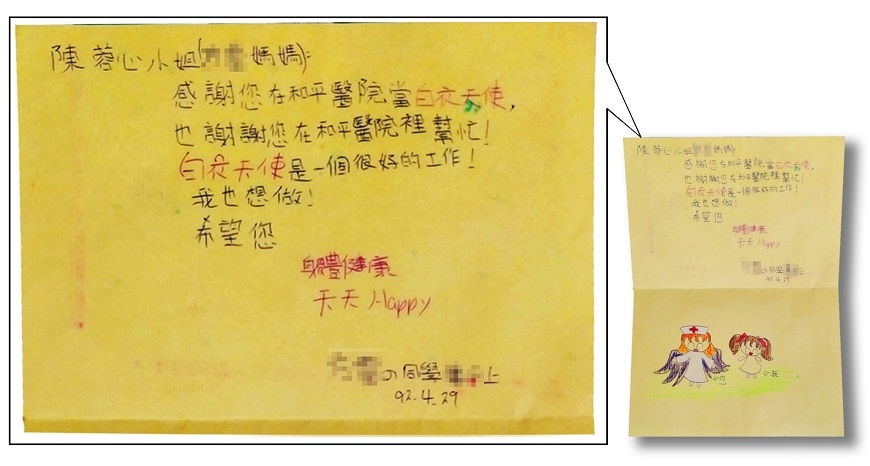 陳蓉心小姐(媽媽):
感謝您在和平醫院當白衣天使,
也謝謝您在和平醫院裡幫忙!
白衣天使是一個很好的工作!
我也想做!
希望您
身體健康
天天Happy
の同學 上
92.4.29
陳蓉心小姐 媽媽):
感謝您在和平醫院當白衣天使,
也謝謝您在和平醫院裡幫忙!
白衣天使是一個很好的工作!
我也想做!
希望您
身體健康
天天Happy
の同學 上
92.4.29
←您
←我